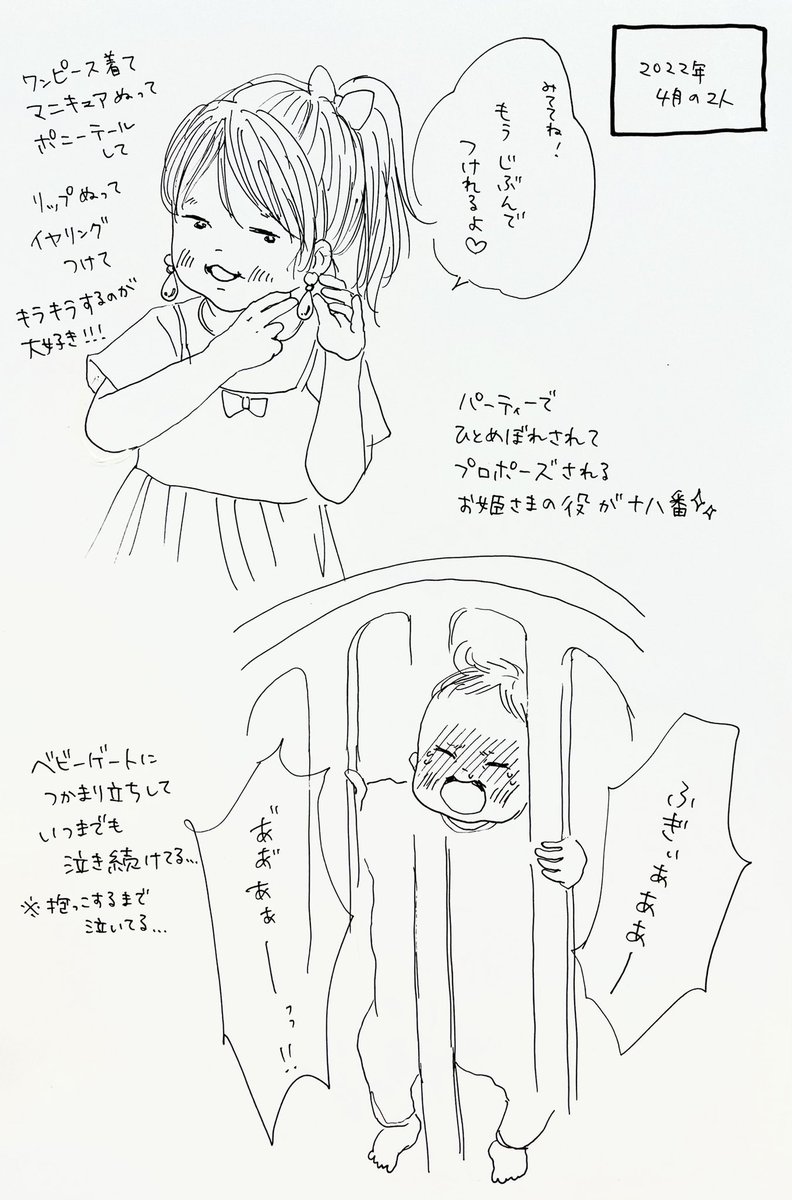 2022年
4月の2人
ワンピース着て
マニキュアぬって
ポニーテール
して
リップぬって
イヤリング
つけて
キラキラするのが
大好き!!!
みててね!
もうじぶんで
つけれるよ♡
パーティーで
ひとめぼれされて
プロポーズされる
お姫さまの役が十八番✨
ふぎぃぁぁぁー
あ゛あ゛ぁぁーっっ!!
ベビーゲートに
つかまり立ちして
いつまでも
泣き続けてる…
※抱っこするまで
泣いてる…